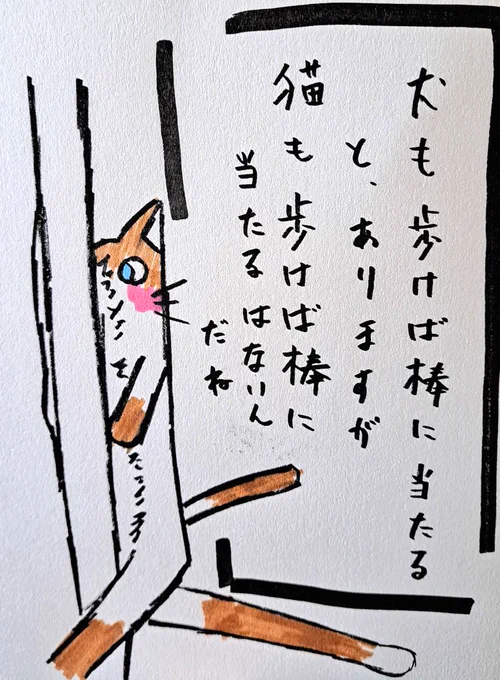 犬も歩けば棒に当たる
と、ありますが
猫も歩けば棒に
当たるはないん
だね